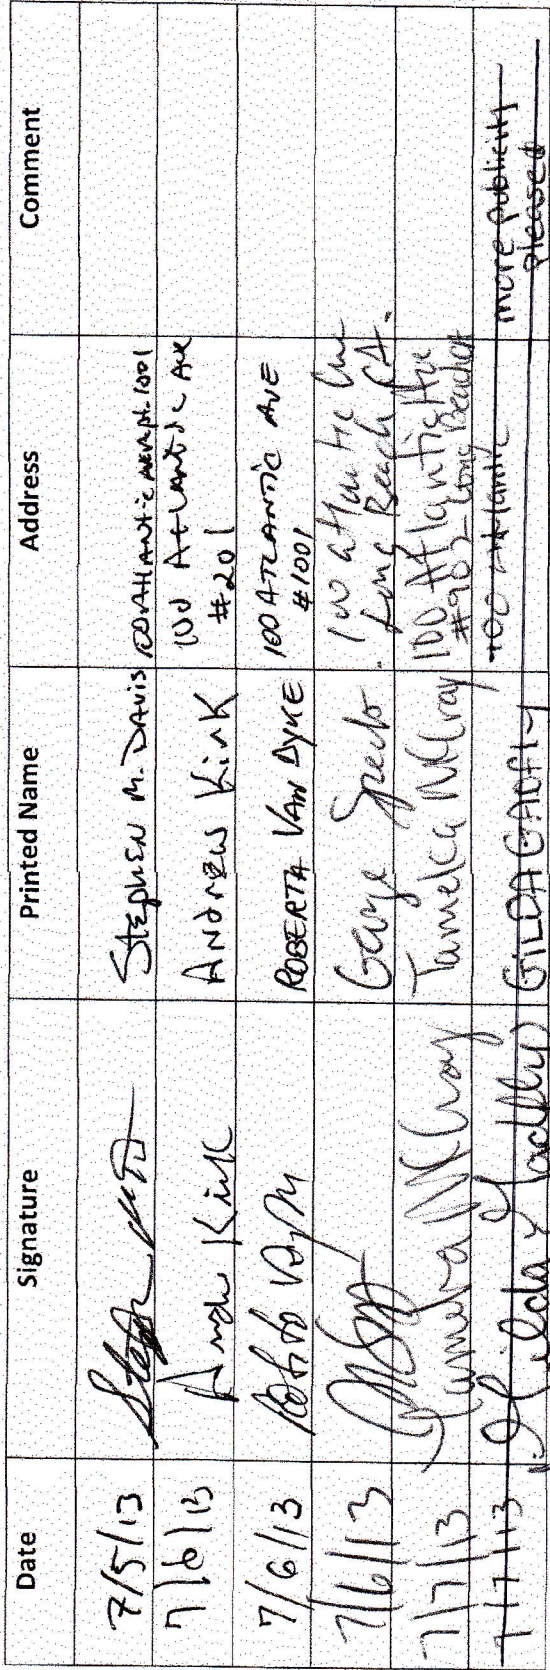 Date Signature Printed Name Address Comment
7/5/13 Stephen M. Davis 100 Atlantic Ave Apt. 1001
7/6/13 Andrew Kirk Andrew Kirk 100 Atlantic Ave
#201
7/6/13 Roberta Van Dyke 100 Atlantic Ave
#1001
7/6/13 George 100 Atlantic Ave
Long Beach CA.
7/7/13 Tameka McCray Tameka McCray 100 Atlantic Ave
#902 Long Beach
7/7/13 Gilda Gadfly Gilda Gadfly 100 Atlantic more publicity
pleased